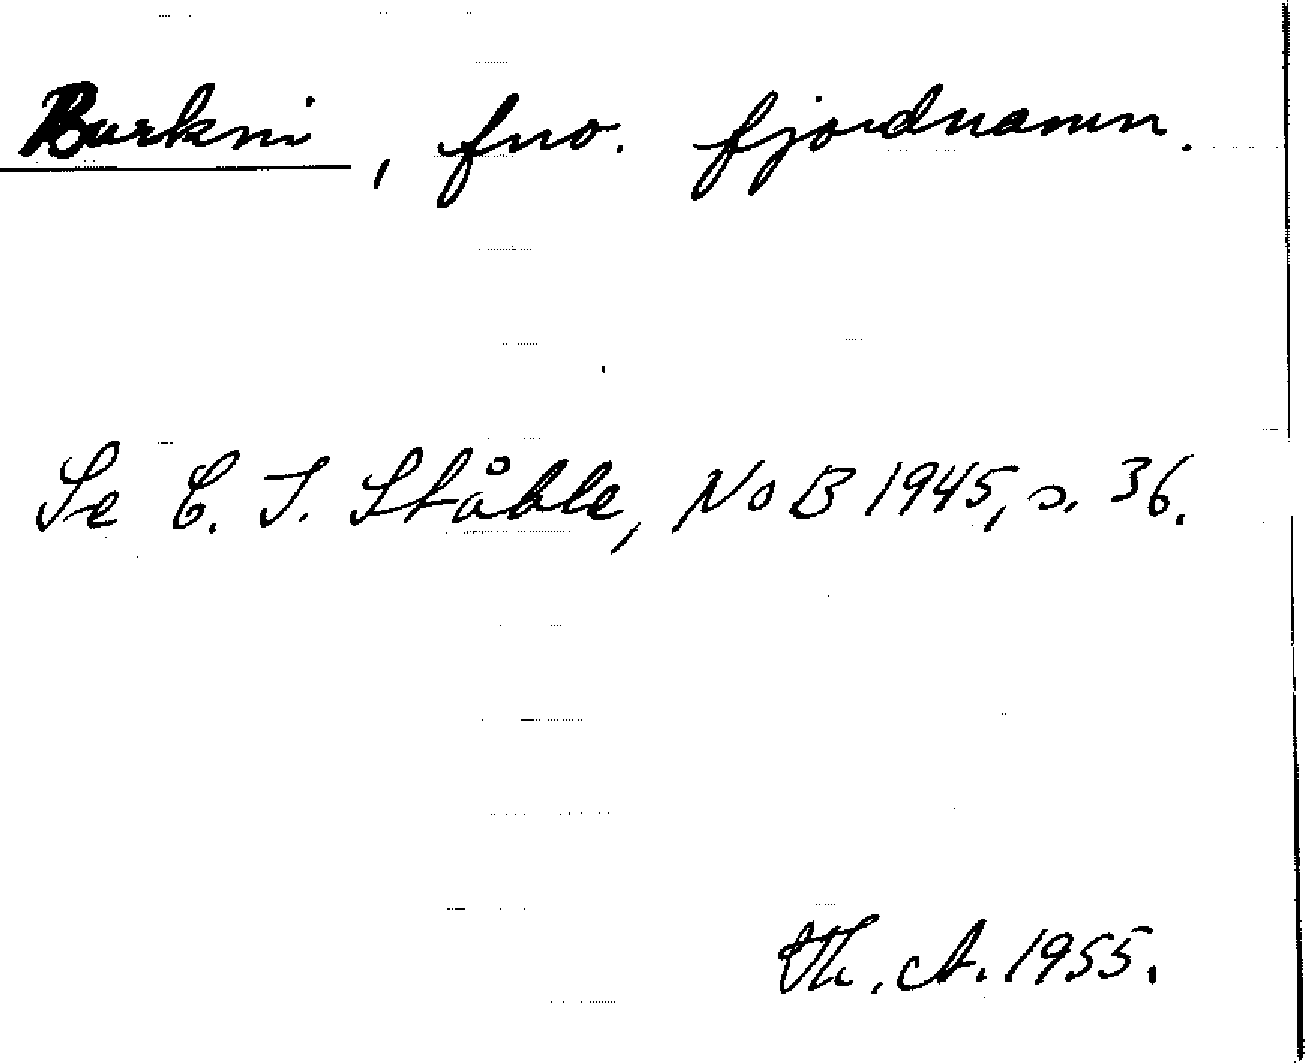 Barkni, fno. fjordnamn.
Se C. I. Ståhle, NoB 1945, s. 36.
Th. A. 1955.